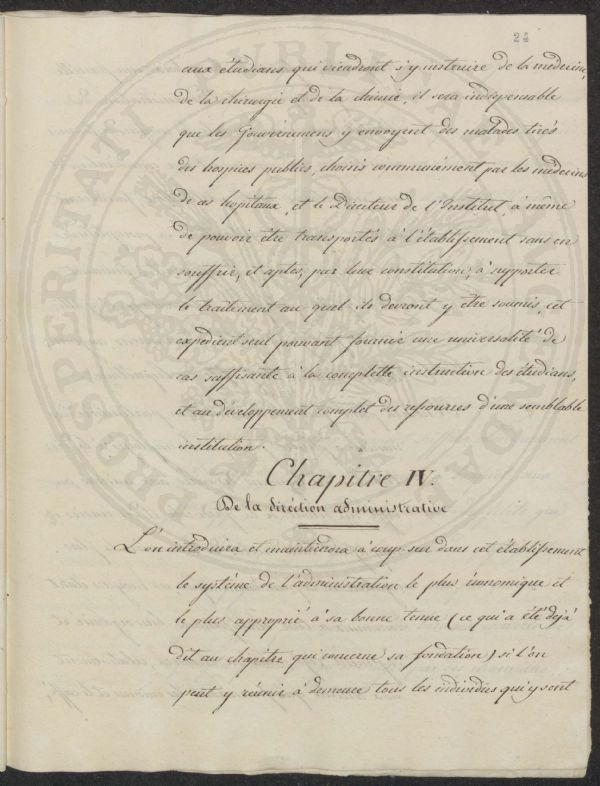 24
aux étudians qui viendront s'y instruire de la médecine,
de la chirurgie et de la chimie, il sera indispensable
que les Gouvernemens y envoyent des malades tirés
des hospices publics, choisis communément par les médecins
de ces hopitaux, et le Directeur de l'Institut, à même
de pouvoir être transportés à l'établissement sans en
souffrir, et aptes, par leur constitution, à supporter
le traitement au quel ils devront y être soumis, cet
expédient seul pouvant fournir une universalité de
cas suffisante à la complette instruction des étudians,
et au développement complet des ressources d'une semblable
institution.
Chapitre IV.
De la diréction administrative
L'on introduira et maintiendra à coup-sur dans cet établissement
le système de l'administration le plus économique et
le plus approprié à sa bonne tenue (ce qui a été déjà
dit au chapitre qui concerne sa fondation) si l'on
peut y réunir à demeure tous les individus qui y sont
PROSPERITATI